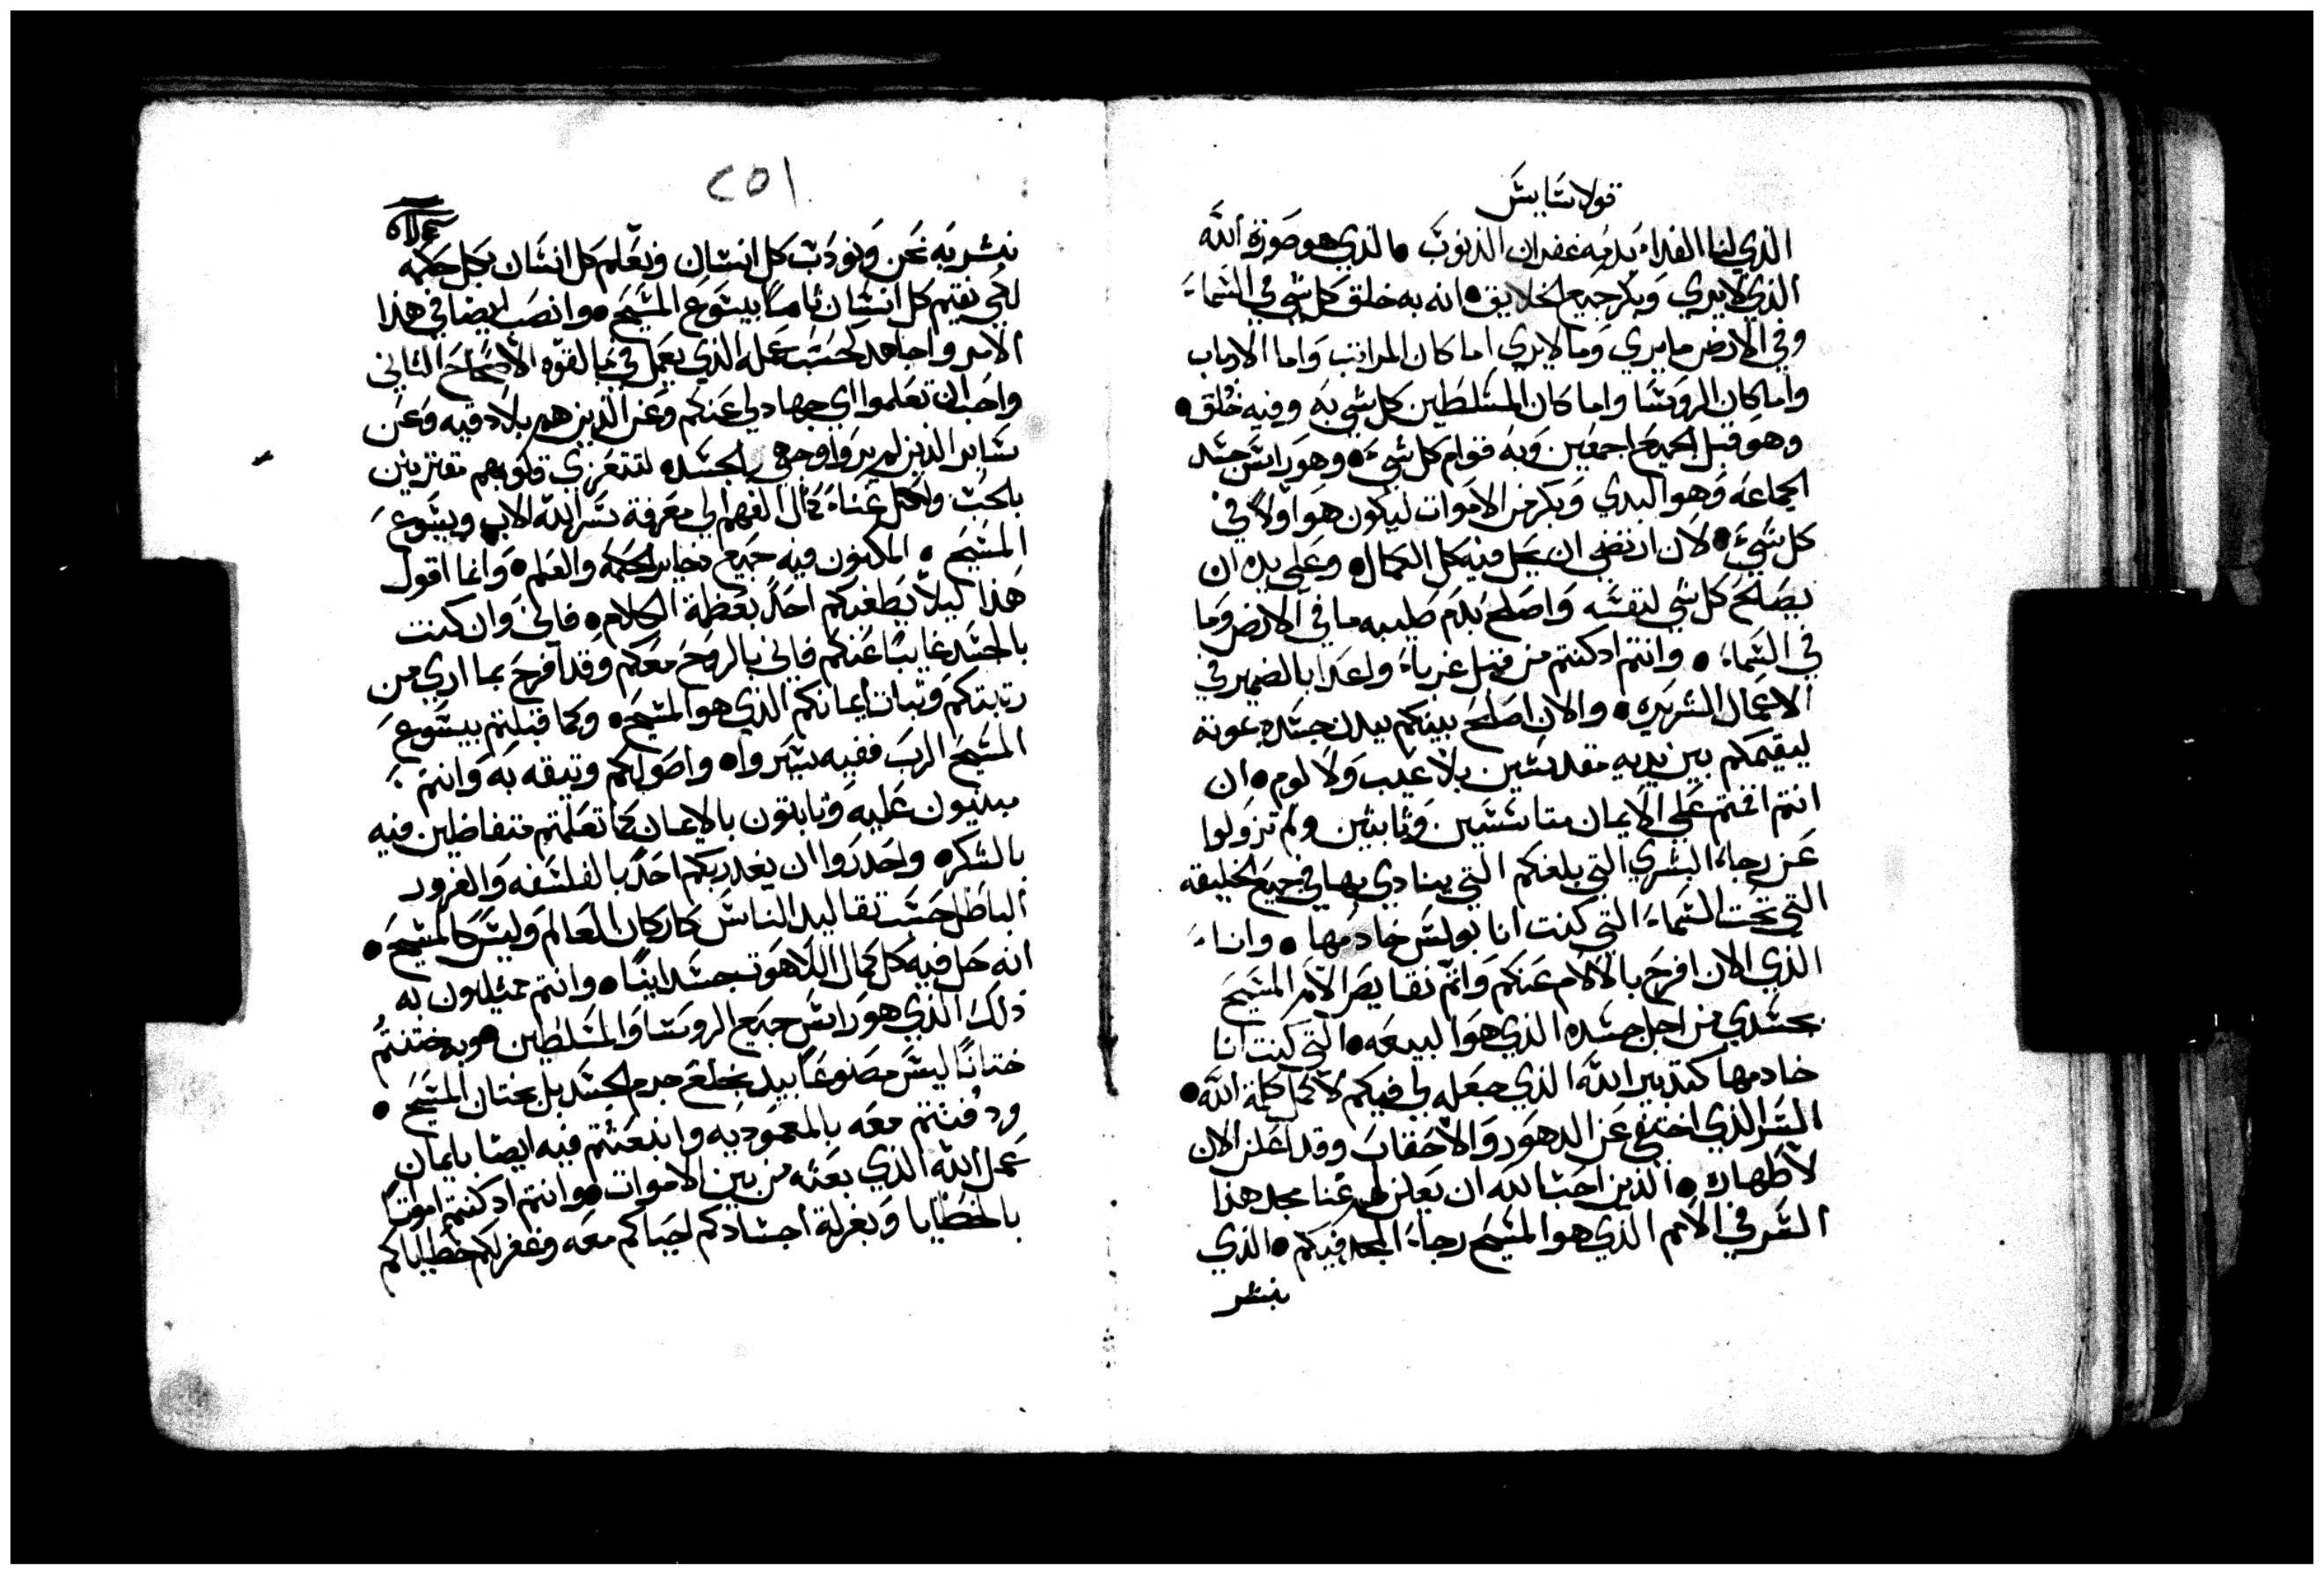 قولاسايس
الذي لنا الفداء بدمه غفران الذنوب • الذي هو صورة الله
الذي لا يري وبكر جميع الخلايق • انه به خلق كل شي في السماء
وفي الارض ما يري وما لا يري اما كان المراتب واما الارباب
واما كان الروسا واما كان المسلطين كل شي به وفيه خُلق •
وهو قبل الجميع اجمعين وبه قوام كل شيء • وهو راس جسد
الجماعه وهو البدي وبكر من الاموات ليكون هو اولاً في
كل شيء • لان ارتضي ان يحل فيه كل الكمال • وعلي يده ان
يصلح كل شي لنفسه واصلح بدم صليبه ما في الارض وما
في السماء • وانتم اد كنتم من قبل غرباء واعدا بالضمير في
الاعمال الشريره • والان اصلح بينكم ببدن جسده بموته
ليقيمكم بين يديه مقدسين بلا عيب ولا لوم • ان
انتم اقمتم علي الايمان متاسسين وثابتين ولم تزولوا
عن رجاء البشري التي بلغكم التي ينادي بها في جميع الخليقه
التي تحت السماء التي كنت انا بولس خادمها • وانا
الذي الان افرح بالالام عنكم واتم نقايص الام المسيح
بجسدي من اجل جسده الذي هو البيعه • التي كنت انا
خادمها كتدبير الله الذي جعله لي فيكم لاكمل كلمة الله •
السر الذي اختفي عن الدهور والاحقاب وقد اعلن الان
لاطهاره • الذين احب الله ان يعلن لهم غنا مجد هذا
السر في الامم الذي هو المسيح رجاء المجد فيكم • الذي
نبشر
٢٥١
نبشر به نحن ونودب كل انسان ونعلم كل انسان بكل حكمه
لكي نقيم كل انسان تاماً بيسوع المسيح • وانصب ايضا في هذا
الامر واجاهد كحسب عمله الذي يعمل في بالقوه الاصحاح الثاني
واحب ان تعلموا اي جهاد لي عنكم وعن الذين هم بلادقيه وعن
ساير الذين لم يروا وجهي بالجسد لتتعزي قلوبهم مقترنين
بالحب ولكل غناء كمال الفهم الي معرفة سر الله الاب ويسوع
المسيح • المكنون فيه جميع دخاير الحكمه والعلم • وانما اقول
هذا كيلا يطغيكم احد بعظة الكلام • فاني وان كنت
بالجسد غايبا عنكم فاني بالروح معكم وقد افرح بما اري من
رتبتكم وثبات ايمانكم الذي هو المسيح • وكما قبلتم بيسوع
المسيح الرب ففيه سيروا • واصولكم وتيقه به وانتم
مبنيون عليه وتابتون بالايمان كما تعلمتم متفاضلين فيه
بالشكر • واحدروا ان يغدر بكم احد بالفلسفه والغرور
الباطل حسب تقاليد الناس كاركان العالم وليس كالمسيح •
انه حل فيه كل كمال اللاهوت جسدانيا • وانتم ممتلاون به
ذلك الذي هو راس جميع الروسا والمسلطين • وبه ختنتم
ختانًا ليس مصنوعًا بيد بخلع جرم الجسد بل بختان المسيح •
ودُفنتم معه بالمعموديه وانبعثتم فيه ايضا بايمان
عمل الله الذي بعثه من بين الاموات • وانتم اد كنتم امواتًا
بالخطايا وبغرلة اجسادكم احياكم معه وغفر لكم خطاياكم